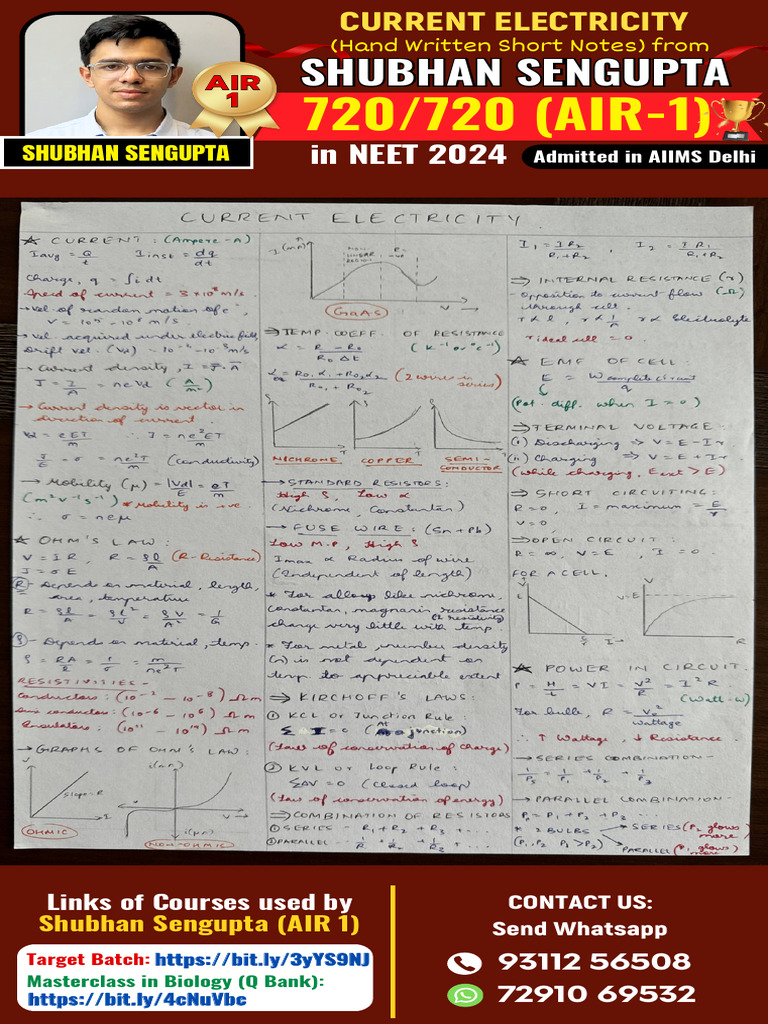 CURRENT ELECTRICITY
(Hand Written Short Notes) from
SHUBHAN SENGUPTA
AIR
1
720/720 (AIR-1)
SHUBHAN SENGUPTA
in NEET 2024
Admitted in AIIMS Delhi
CURRENT ELECTRICITY
☆ CURRENT: (Ampere-A)
Iavg = Q/t Iinst = dq/dt
Charge, q = ∫i dt
Speed of current = 3×10⁸ m/s.
→ Vel. of random motion of e⁻
V = 10⁵ - 10⁶ m/s
→ Vel acquired under electric field,
Drift vel. (Vd) = 10⁻⁴ - 10⁻³ m/s
→ Current density, I =
J = I/A = neVd (A/m²)
→ Current density is vector in
direction of current.
Vd = eEτ/m ∴ J = ne²Eτ/m
J/E = σ = ne²τ/m (conductivity)
→ Mobility (μ) = |Vd|/E = eτ/m
(m²V⁻¹s⁻¹) * Mobility is +ve.
∴ σ = neμ
☆ OHM'S LAW:
V = IR, R = ρl/A (R-Resistance)
J = σE
R - Depends on material, length,
area, temperature
R = ρl/A = ρl²/V = ρV/A² = 1/G
ρ - Depends on material, temp.
ρ = RA/l = 1/σ = m/ne²τ
RESISTIVITIES -
Conductors: (10⁻² - 10⁻⁸) Ωm
Semi conductors: (10⁻⁶ - 10⁶) Ωm
Insulators: (10¹¹ - 10¹⁹) Ωm
→ GRAPHS OF OHM'S LAW:
V
Slope = R
I
OHMIC
i(mA)
V →
i(μA)
NON-OHMIC
I (mA)
NON
LINEAR
REGION
V →
GaAs
⇒ TEMP. COEFF. OF RESISTANCE
α = R - R₀/R₀ Δt (K⁻¹ or °C⁻¹)
α = R₀₁α₁ + R₀₂α₂/R₀₁ + R₀₂ (2 wires in
series)
ρ T
NICHROME
ρ T
COPPER
ρ T
SEMI-
CONDUCTOR
→ STANDARD RESISTORS:
High ρ, Low α
(Nichrome, Constantan)
→ FUSE WIRE: (Sn+Pb)
Low M.P, High ρ
Imax α Radius of wire
(Independent of length)
* For alloys like nichrome,
constantan, magnanin resistance
& resistivity
change very little with temp.
* For metal, number density
(n) is not dependent on
temp to appreciable extent
⇒ KIRCHOFF'S LAWS:
① KCL or Junction Rule:
Σ I = 0 (At junction)
(Law of conservation of charge)
② KVL or Loop Rule:
ΣΔV = 0 (Closed loop)
(Law of conservation of energy)
⇒ COMBINATION OF RESISTORS
① SERIES - R₁ + R₂ + R₃ + ...
② PARALLEL - 1/R₁ + 1/R₂ + 1/R₃ + ...
I₁ = IR₂/R₁+R₂, I₂ = IR₁/R₁+R₂
⇒ INTERNAL RESISTANCE (r)
- Opposition to current flow (Ω)
through cell.
r α l, r α 1/A, r α Electrolyte
r ideal cell = 0.
☆ EMF OF CELL:
E = W complete circuit/q
(Pot. diff. when I = 0)
⇒ TERMINAL VOLTAGE
(i) Discharging ⇒ V = E - Ir.
(ii) Charging ⇒ V = E + Ir
(While charging, Eext > E)
⇒ SHORT CIRCUITING:
R = 0, I = maximum = E/r
V = 0,
⇒ OPEN CIRCUIT:
R = ∞, V = E, I = 0.
FOR A CELL,
V
E
E/r I →
V
V=E
R
☆ POWER IN CIRCUIT.
P = H/t = VI = V²/R = I²R
(Watt-W)
For bulb, R = V²/Wattage
∴ ↑ Wattage, ↓ Resistance.
→ SERIES COMBINATION -
1/Ps = 1/P₁ + 1/P₂ + 1/P₃
→ PARALLEL COMBINATION -
Pp = P₁ + P₂ + P₃ ...
* 2 BULBS → SERIES (P₂ glows
more)
(P₁, P₂ P₁ > P₂) → PARALLEL (P₁ glows
more)
Links of Courses used by
Shubhan Sengupta (AIR 1)
Target Batch: https://bit.ly/3yYS9NJ
Masterclass in Biology (Q Bank):
https://bit.ly/4cNuVbc
CONTACT US:
Send Whatsapp
93112 56508
72910 69532